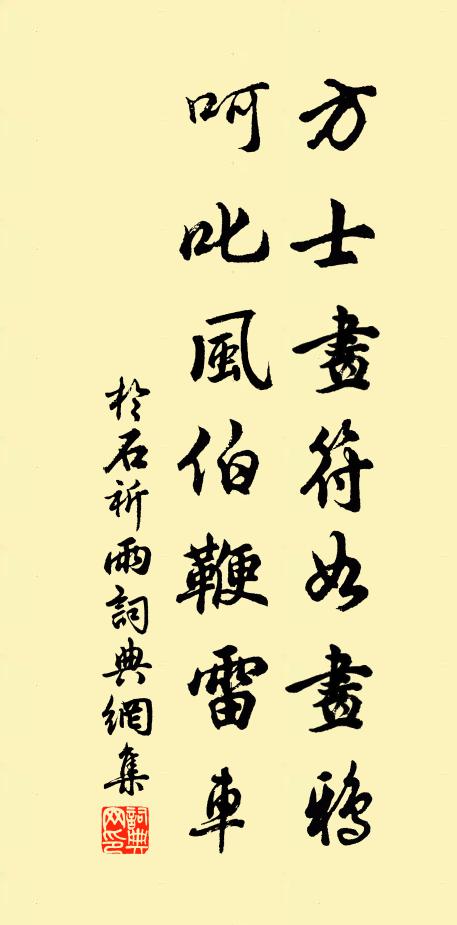 方士畫符如畫鴉
呵叱風伯鞭雷車
於石祈雨詞典網集
詞典網印